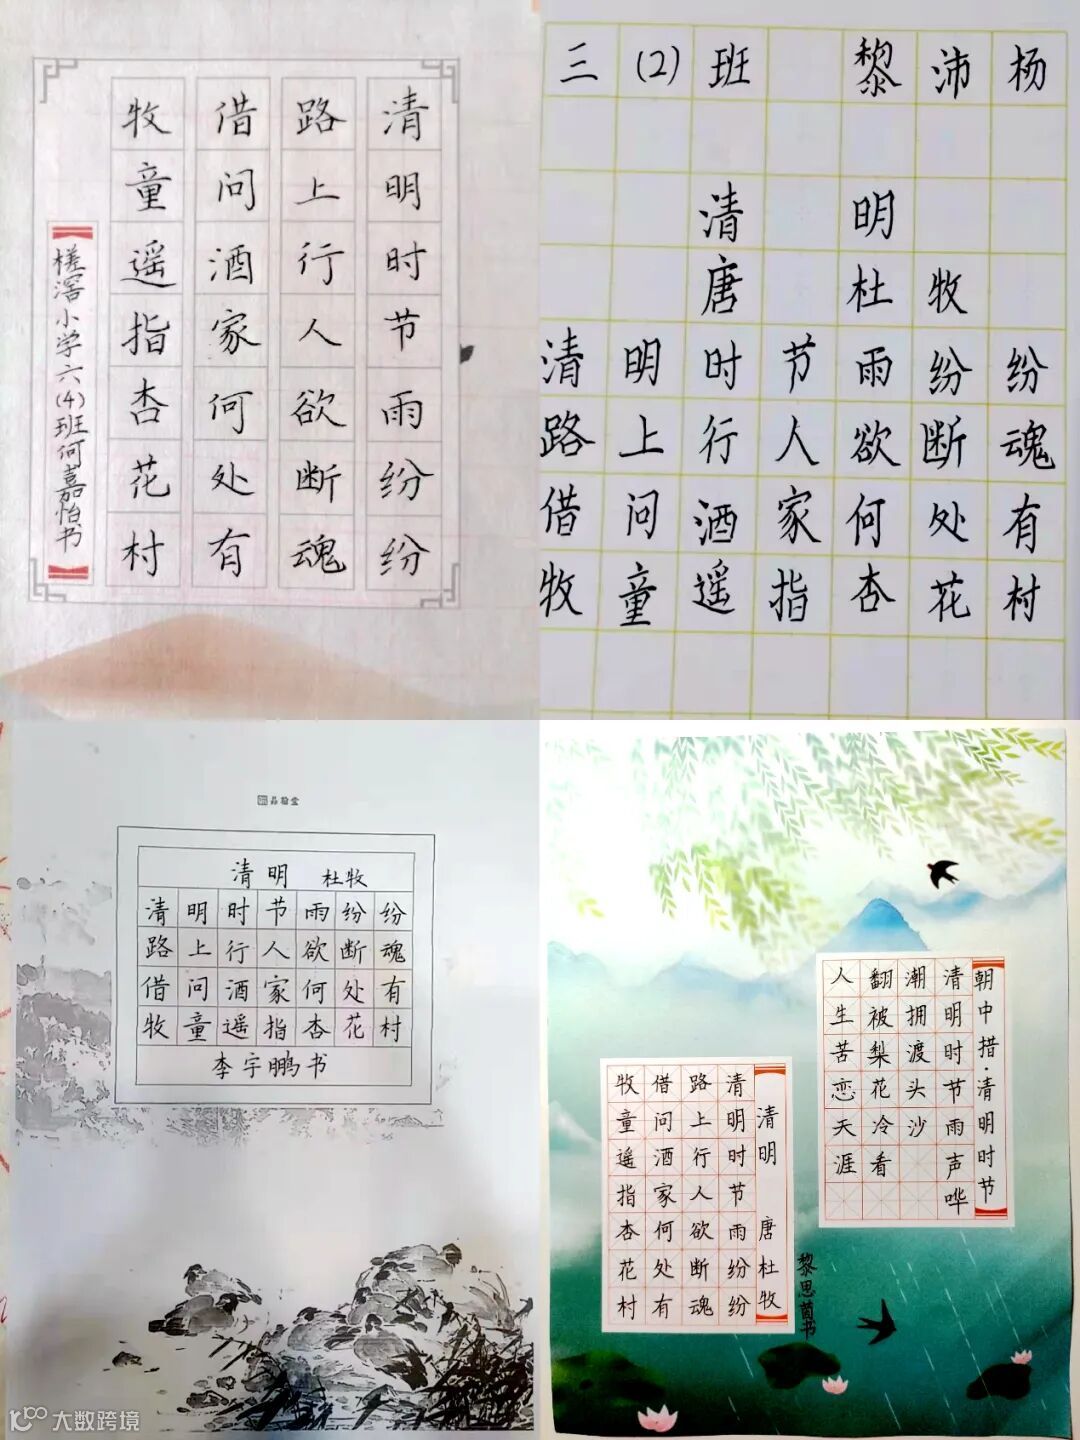 清明时节雨纷纷
路上行人欲断魂
借问酒家何处有
牧童遥指杏花村
槎滘小学六(4)班何嘉怡书
三(2)班 黎沛杨
清明
唐 杜牧
清明时节雨纷纷
路上行人欲断魂
借问酒家何处有
牧童遥指杏花村
品翰堂
清明 杜牧
清明时节雨纷纷
路上行人欲断魂
借问酒家何处有
牧童遥指杏花村
李宇鹏书
朝中措·清明时节
清明时节雨声哗
潮拥渡头沙
翻被梨花冷看
人生苦恋天涯
清明 唐杜牧
清明时节雨纷纷
路上行人欲断魂
借问酒家何处有
牧童遥指杏花村
黎思茵书
大数跨境